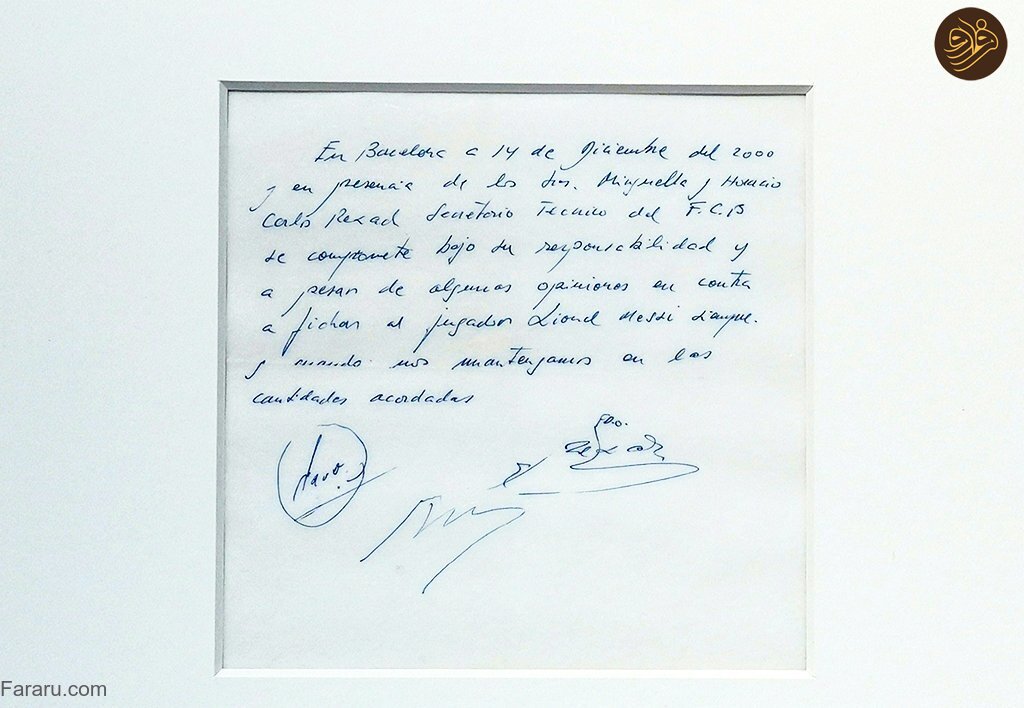 En Barcelona a 14 de Diciembre del 2000
y en presencia de los Srs. Minguella y Horacio
Carlos Rexach Secretario Tecnico del F.C.B
se compromete bajo su responsabilidad y
a pesar de algunas opiniones en contra
a fichar al jugador Lionel Messi siempre
y cuando nos mantengamos en las
cantidades acordadas
Fararu.com